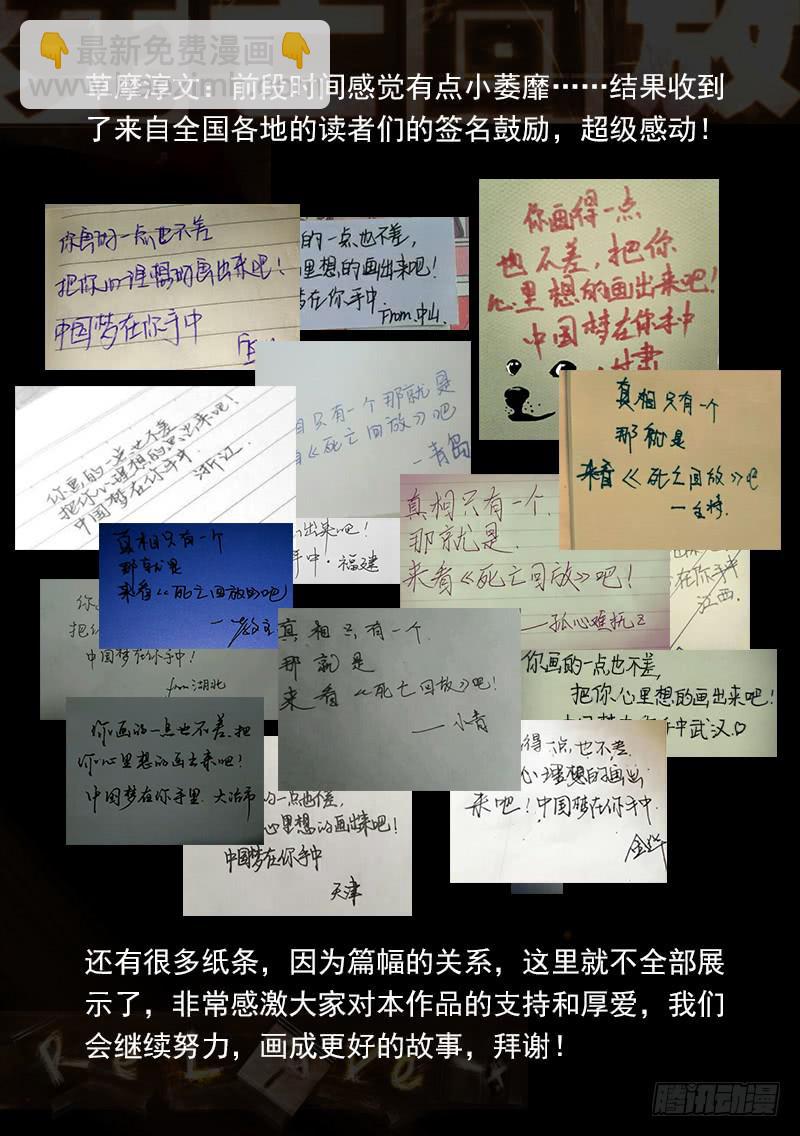 👇最新免费漫画👇
草摩淳文：前段时间感觉有点小萎靡……结果收到
了来自全国各地的读者们的签名鼓励，超级感动！
你画的一点也不差
把你心里想的画出来吧！
中国梦在你手中
的一点也不差，
里想的画出来吧！
在你手中
From.中山.
你画得一点
也不差，把你
心里想的画出来吧！
中国梦在你手中
甘肃
你画的一点也不差
把你心里想的画出来吧！
中国梦在你手中.
浙江.
只有一个那就是
《死亡回放》吧
一青岛
真相只有一个
那就是
来看《死亡回放》吧
真相只有一个
那就是
来看《死亡回放》吧
出来吧！
手中·福建
真相只有一个.
那就是.
来看《死亡回放》吧！
在你手中
江西.
中国梦在你手中！
from 湖北
真相只有一个.
那就是
来看《死亡回放》吧！
——小青
你画的一点也不差，
把你心里想的画出来吧！
手中武汉.♡
你画的一点也不差.把
你心里想的画出来吧！
中国梦在你手里.大冶市
的一点也不差，
心里想的画出来吧！
中国梦在你手中
天津
得一点，也不差.
心理想的画出
来吧！中国梦在你手中.
还有很多纸条，因为篇幅的关系，这里就不全部展
示了，非常感激大家对本作品的支持和厚爱，我们
会继续努力，画成更好的故事，拜谢！
腾讯动漫